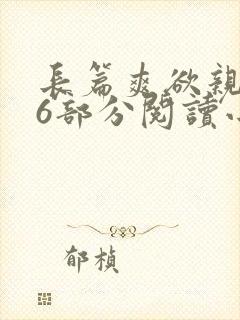 長篇爽欲親
6部分閱讀
郁楨